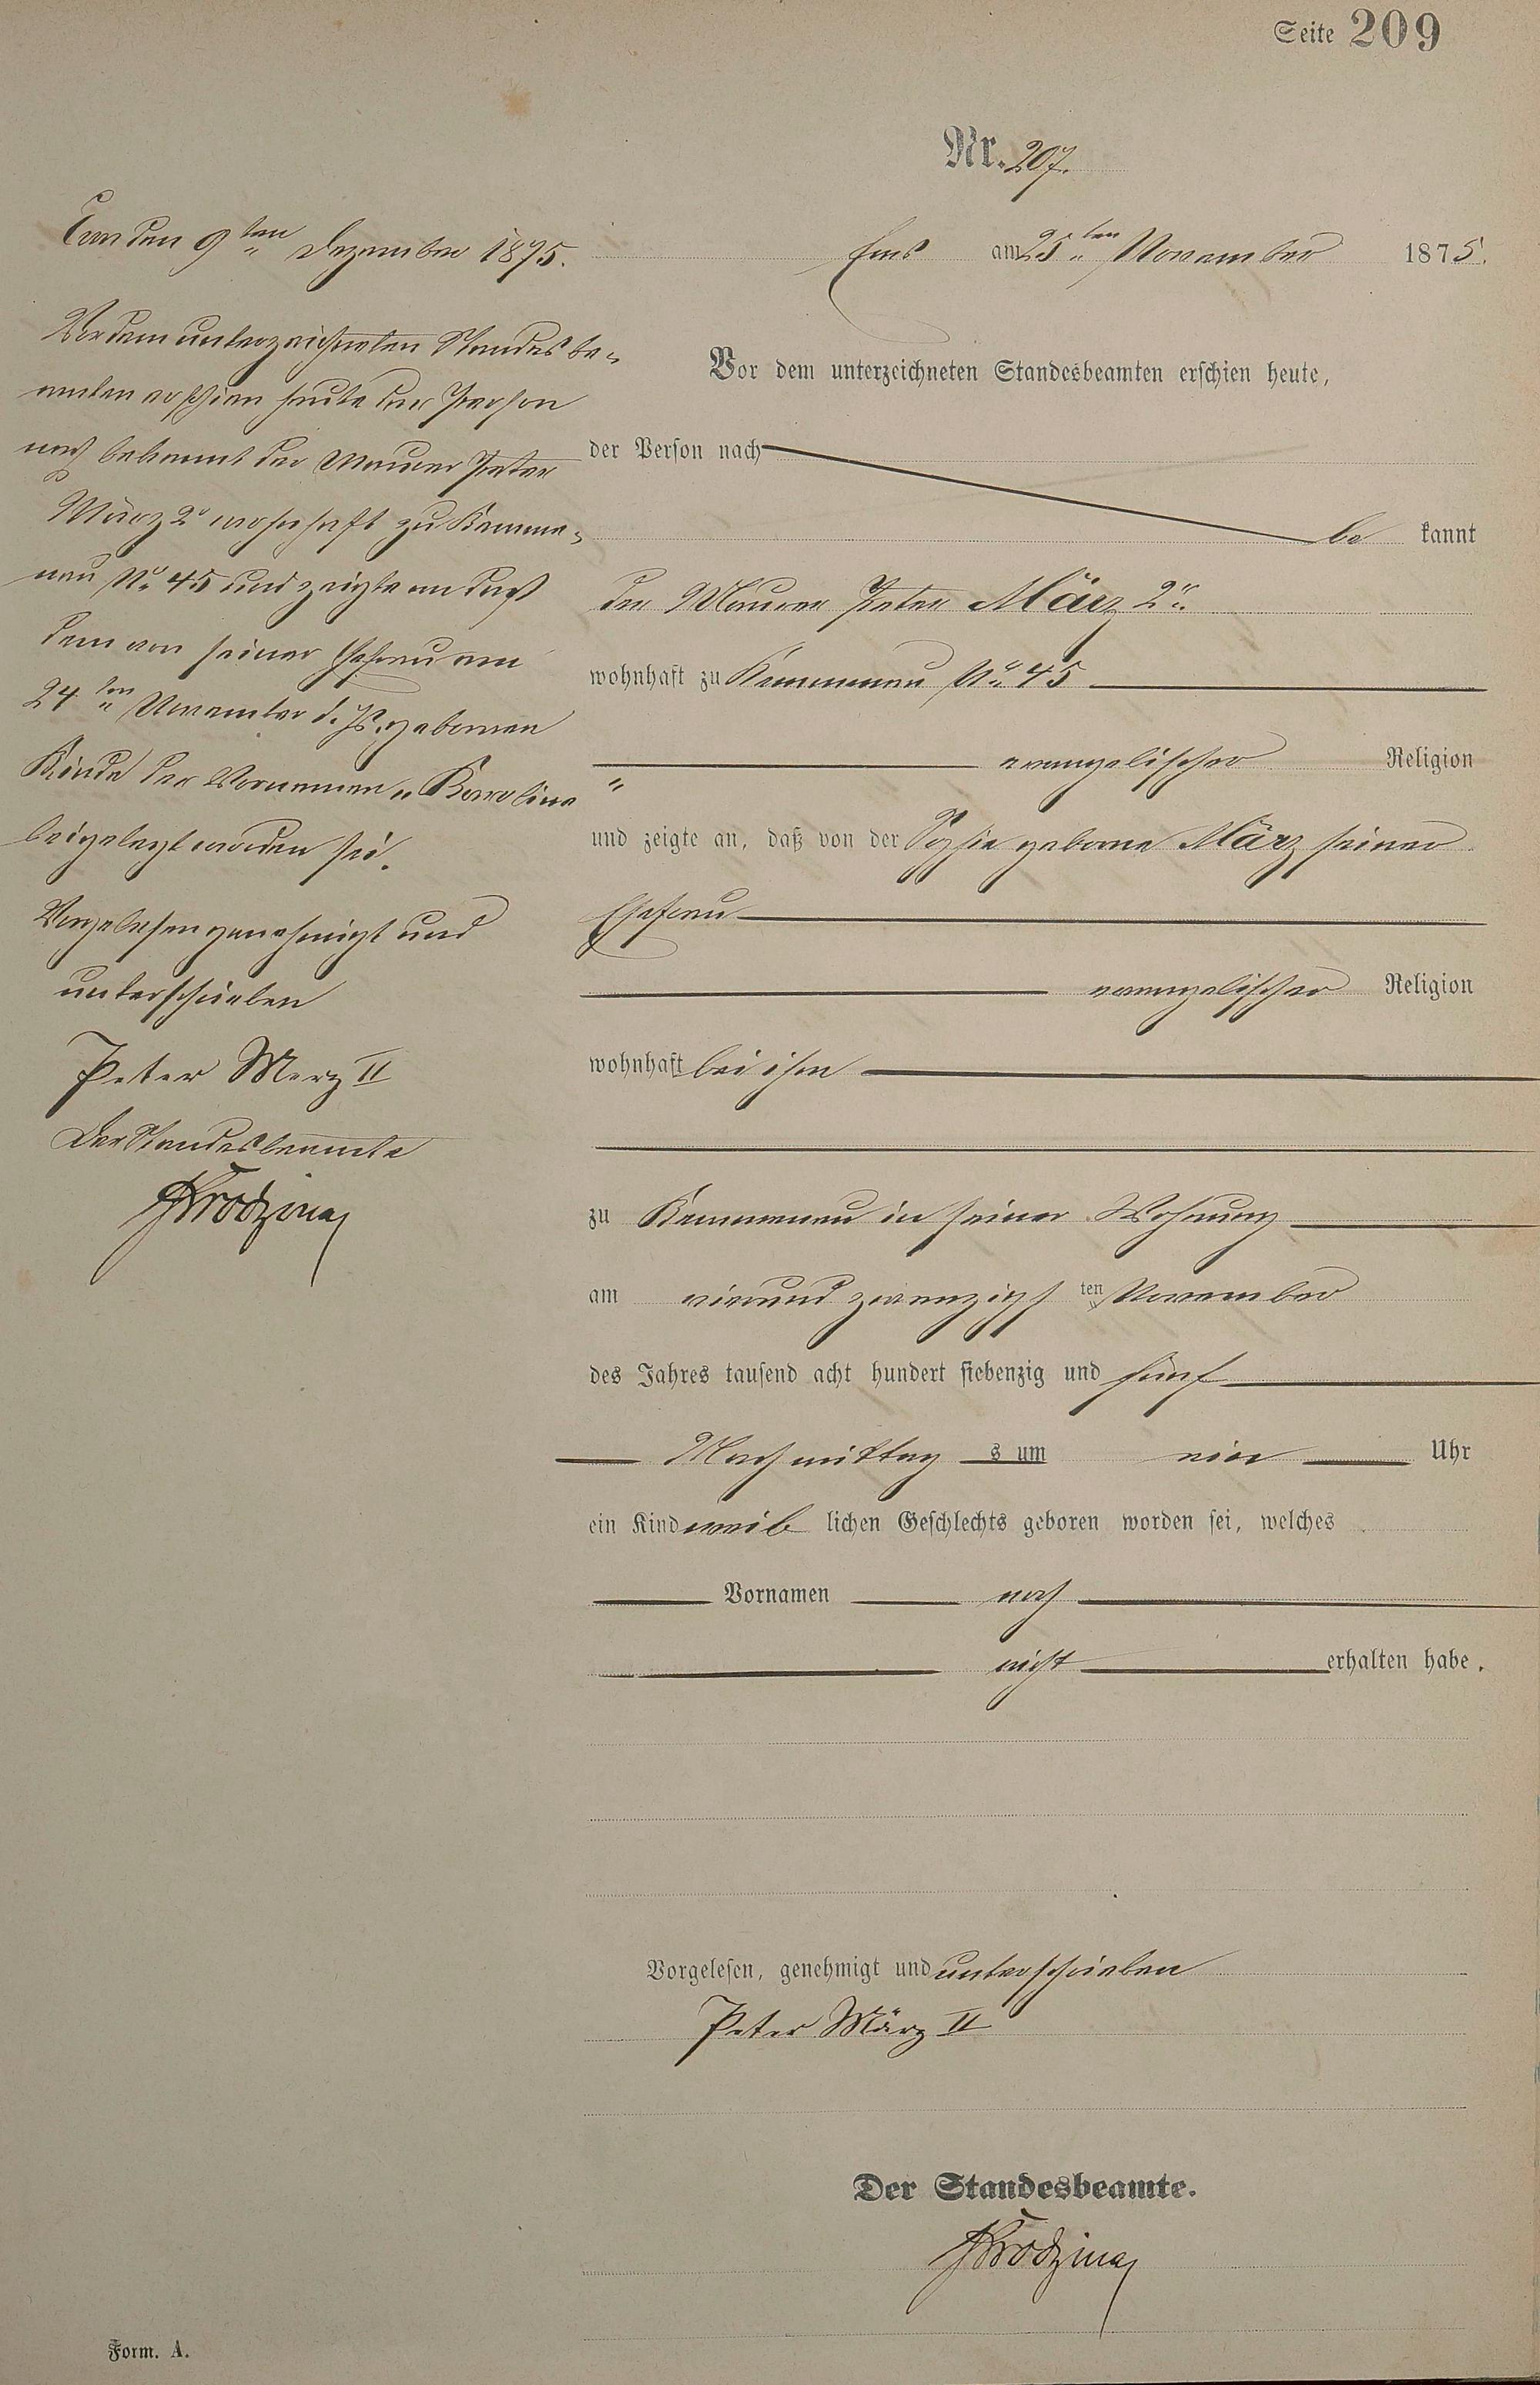 Seite 209
Nr. 207.
Ems am 25ten November 1875.
Vor dem unterzeichneten Standesbeamten erschien heute,
der Person nach
be kannt
der Maurer Peter März 2r.
wohnhaft zu Kemmenau No 45
evangelischer Religion
und zeigte an, daß von der Sophie geborne März seiner
Ehefrau
evangelischer Religion
wohnhaft bei ihm
zu Kemmenau in seiner Wohnung
am vierundzwanzigs ten November
des Jahres tausend acht hundert siebenzig und fünf
Nachmittag s um ein Uhr
ein Kind weib lichen Geschlechts geboren worden sei, welches
Vornamen noch
nicht erhalten habe.
Vorgelesen, genehmigt und unterschrieben
Peter März II
Der Standesbeamte.
Form. A.
Ems den 9ten Dezember 1875.
Vor dem unterzeichneten Standesbe-
amten erschien heute der Person
nach bekannt der Maurer Peter
März 2r wohnhaft zu Kemme-
nau No 45 und zeigte an daß
dem von seiner Ehefrau am
24ten November d. Js. gebornen
Kinde der Vornamen „Karoline"
beigelegt worden sei.
Vorgelesen genehmigt und
unterschrieben
Peter Merz II
Der Standesbeamte